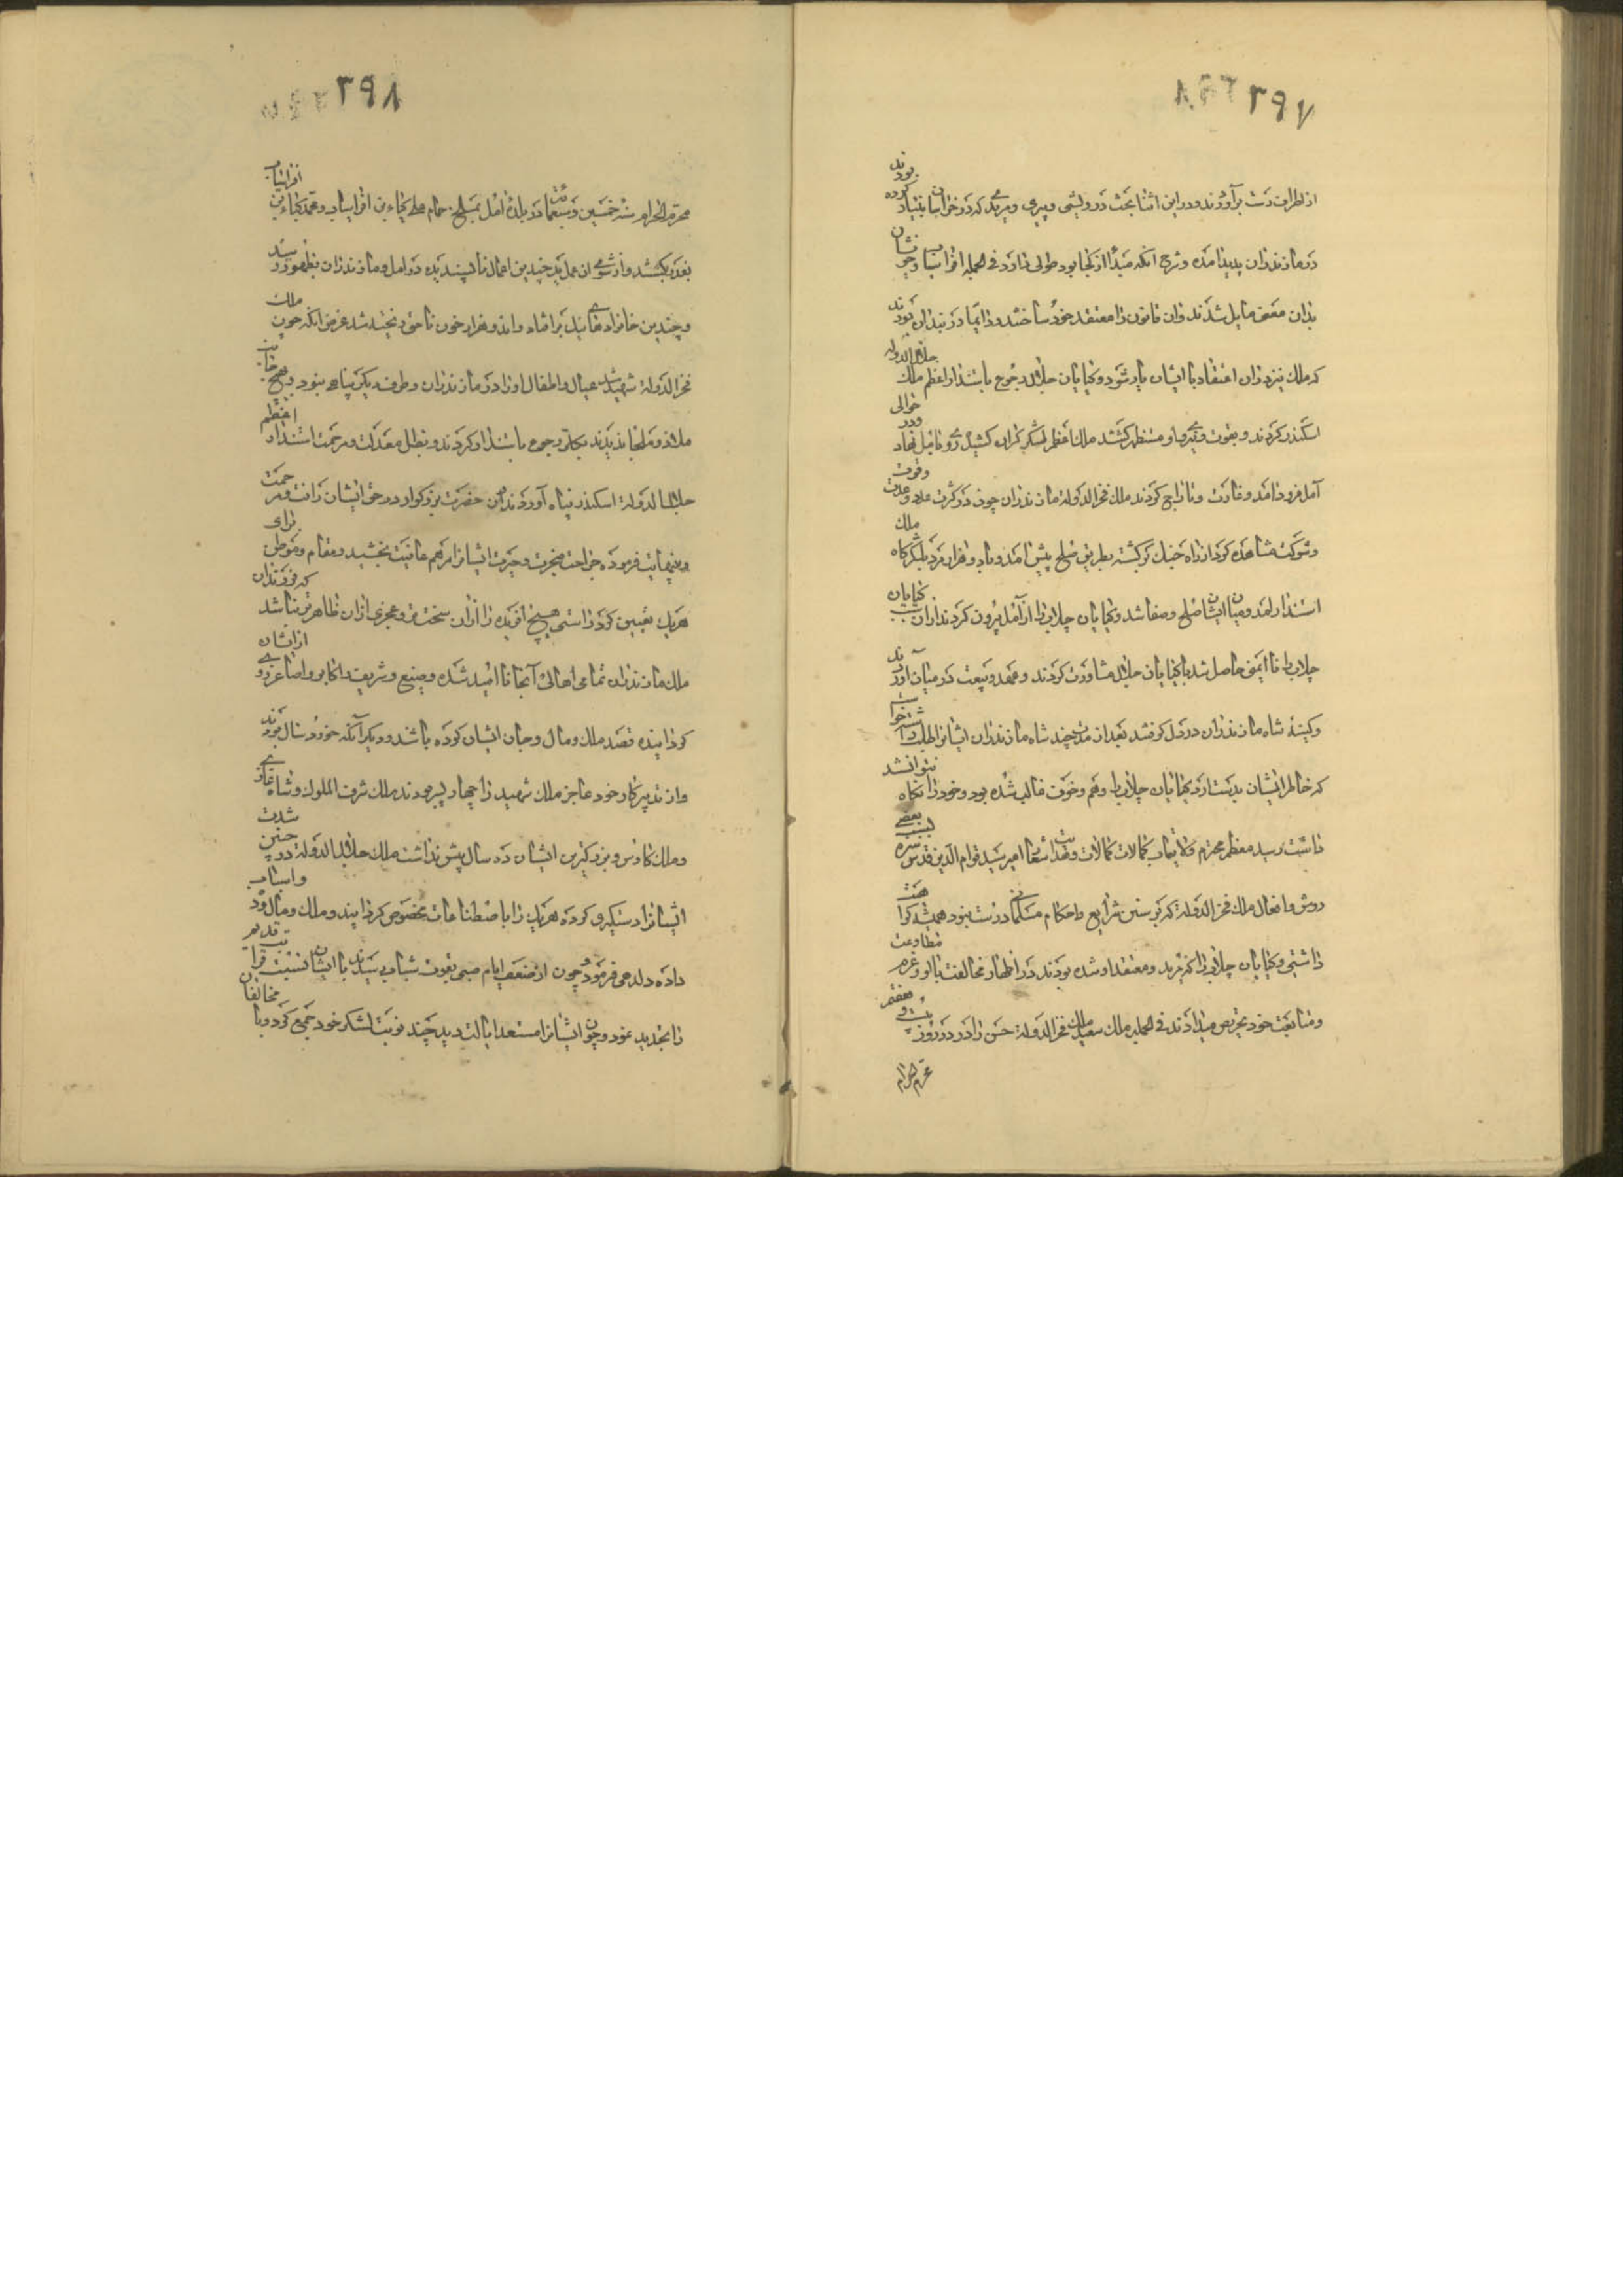 ۳۹۷
از اطراف دست برآوردند و در این اثنا بحث درویشی و پیری و مریدی که در خراسان بنیاد کرده بودند
در مازندران پدید آمده و شرح آنکه مبدأ از کجا بود طولی دارد فی الجمله افراسیاب و خویشان
بدان معنی مایل شدند و آن قانون را معتقد خود ساختند و دایما در بند آن بودند
که ملک نیز در آن اعتقاد با ایشان یار شود و کیایان جلال رجوع با استندار اعظم ملک جلال الدوله
اسکندر کردند و بقوت و نیروی او مستظهر گشتند ملک معظم لشکر گران کشیده رو بآمل نهاد و در حوالی
آمل فرود آمد و غارت و تاراج کردند ملک فخر الدوله مازندران چون در کثرت عدد و عدت و قوت
و شوکت مشاهده کرد از راه جنگ برگشته بطریق صلح پیش آمد و با دو هزار مرد بلشکرگاه ملک
استندار آمد و میان ایشان صلح و صفا شد و کیایان چلابی را از آمل بیرون کردند از آن سبب کیایان
چلابی را نا ایمنی حاصل شد با کیایان جلال مشاورت کردند و عهد و بیعت در میان آوردند
و کینه شاه مازندران در دل گرفتند بعد از مدتی چند شاه مازندران ایشانرا طلب داشت خواست
که خاطر ایشان بدست آرد کیایان چلابی را وهم و خوف غالب شده بود و خود را نگاه نتوانستند
داشت و سید معظم محترم ولایتمآب کمالات و هدایت انتساب امیر سید قوام الدین قدس سره بسبب بعضی
روش و افعال ملک فخر الدوله که بر سنن شرایع و احکام مسلمانی درست نبود همیشه کراهت
داشتی و کیایان چلابی را که مرید و معتقد او شده بودند در اظهار مخالفت با او و عزم مطاوعت
و متابعت خود تحریض میدادند فی الجمله ملک سعید ملک فخر الدوله حسن را در روز بیست و هفتم
محرم الحرام
۳۹۸
محرم الحرام سنه خمسین و سبعمائه در بلده آمل بمسلخ حمام علی کیاء بن افراسیاب و محمد کیاء بن افراسیاب
بغدر بکشتند و از شومی آن عمل بد چندین اعمال ناپسندیده در آمل و مازندران بظهور رسید
و چندین خانواده های نیک برافتاد و اند هزار خون ناحق ریخته شد غرض آنکه چون ملک
فخر الدوله شهید شد عیال و اطفال او را در مازندران و طرف دیگر پناهی نبود و بهیچ جانب
ملاذ و ملجا ندیدند بکلی رجوع باستندار کردند و بظل معدلت و مرحمت استندار اعظم
جلال الدوله اسکندر پناه آوردند این حضرت بزرگوار در حق ایشان رأفت و مرحمت
و بینهایت فرموده جراحت ضجرت و حیرت ایشانرا مرهم عافیت بخشید و مقام و موطن برای
هر یک تعیین کرد راستی هیچ آفریده را از آن سخت تر و عجزی از آن ظاهرتر نباشد که فرزندان
ملک مازندران تمامی اهالی آنجا نا امید شده وضیع و شریف و اکابر و اصاغر روی از ایشان
گردانیده قصد ملک و مال و جان ایشان کرده باشند و دیگر آنکه خورد سال بودند
و از تدبیر کار خود عاجز ملک شهید را چهار پسر بودند ملک شرف الملوک و شاه غازی
و ملک کاوس و بزرگترین ایشان ده سال پیش نداشت ملک جلال الدوله در چنین شدت
ایشانرا دستگیری کرده هر یک را باصطناعات مخصوص گردانیده و ملک و مال و اسباب
داده دلدهی فرمود و چون از ضعف ایام صبی بقوت شباب رسیدند با ایشان نسبت قرابت قدیم
را تجدید نمود و چون ایشانرا مستعد ایالت دید چند نوبت لشکر خود جمع کرد و با مخالفان